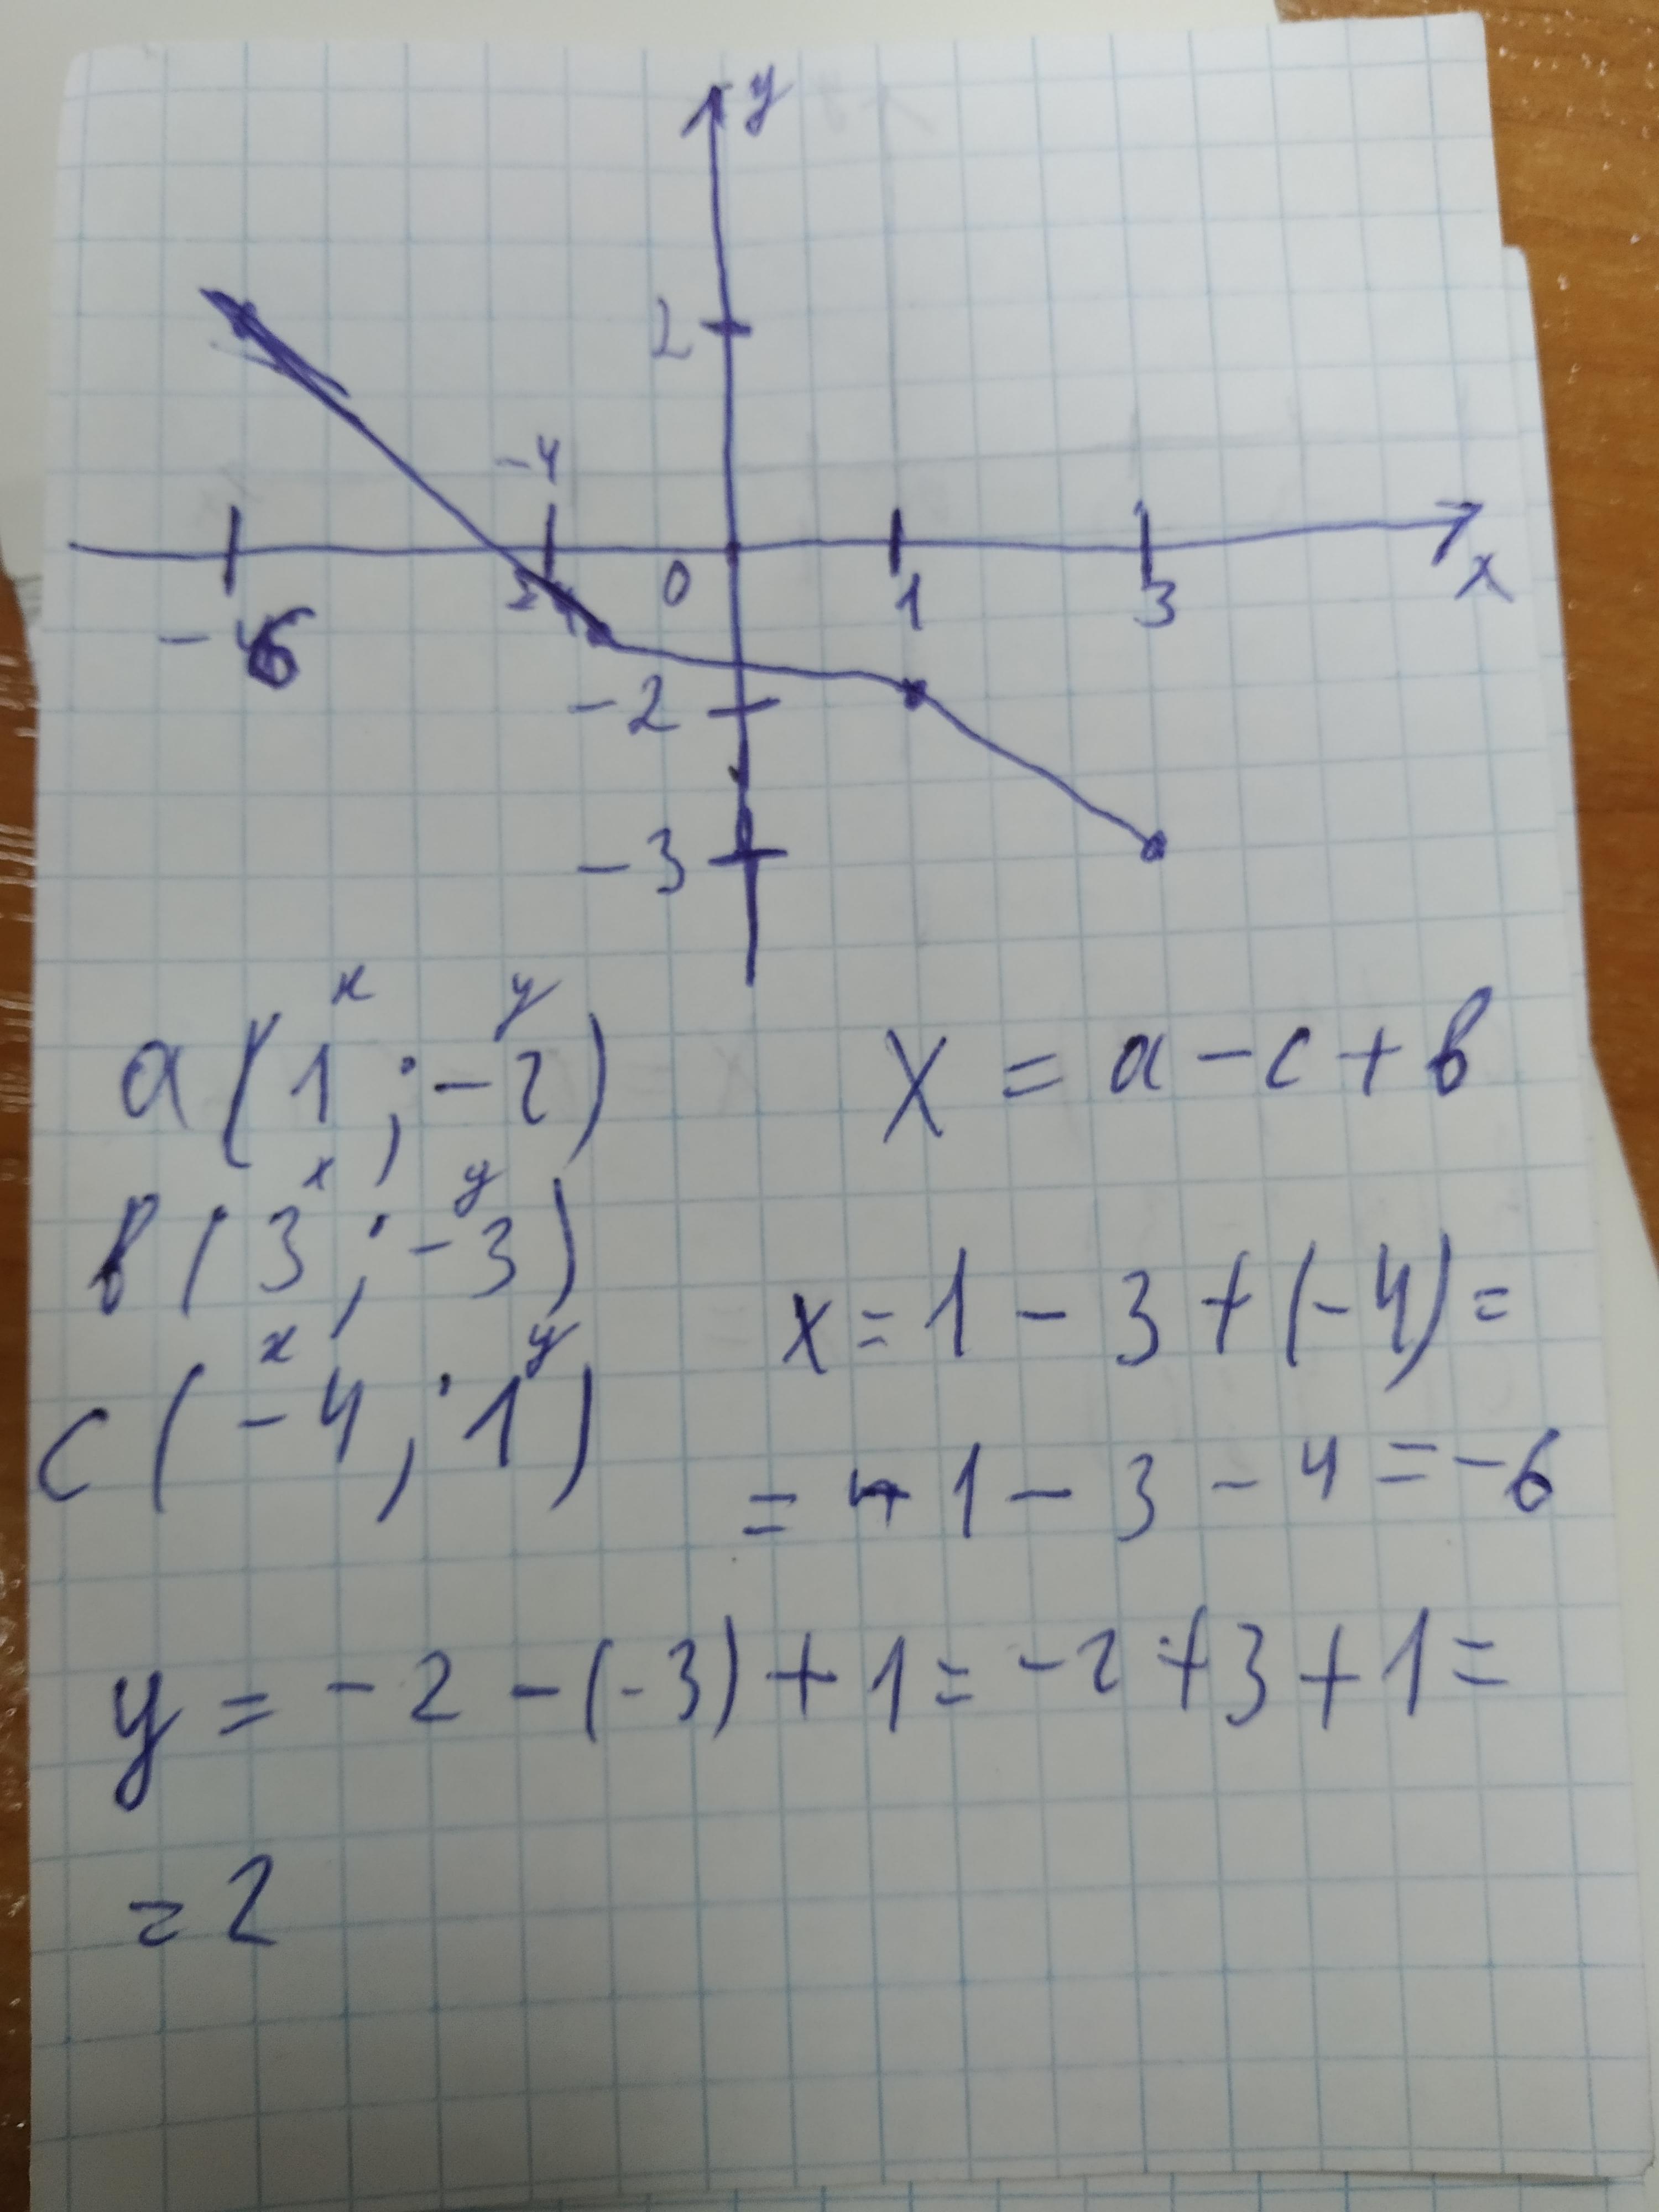 y
2
-4
0
1
3
x
-6
-2
-3
x y
a(1; -2)
X = a - c + b
x y
b(3; -3)
x = 1 - 3 + (-4) =
x y
c(-4; 1)
= 1 - 3 - 4 = -6
y = -2 - (-3) + 1 = -2 + 3 + 1 =
= 2